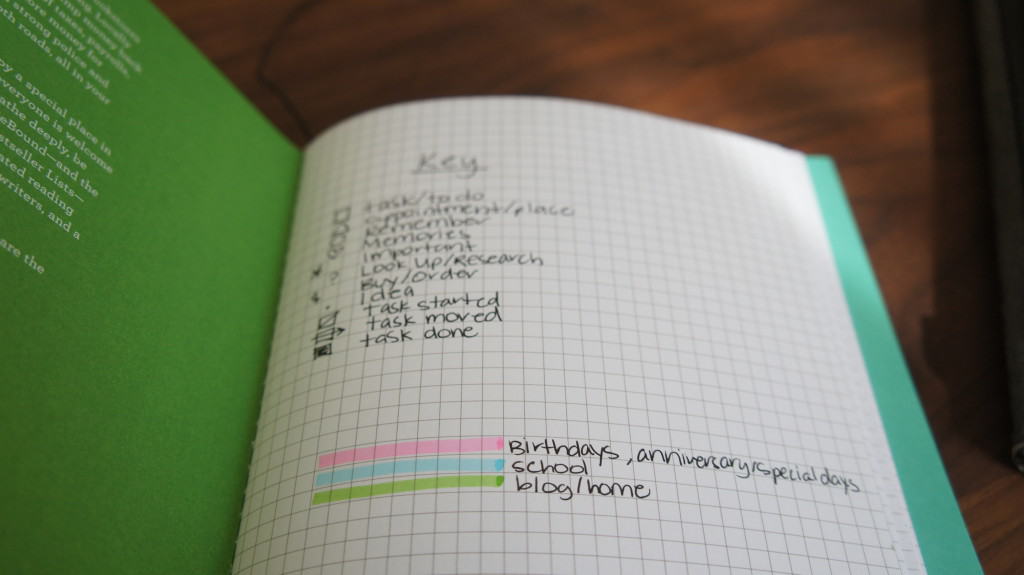 strong police and
roads, all in your
by a special place in
everyone is welcome
deeply, be
and the
Lists—
reading
writers, and a
are the
Key
task/to do
appointment/place
Remember
Memories
Important
Look Up/Research
Buy/Order
Idea
task started
task moved
task done
Birthdays, anniversary, special days
school
blog/home